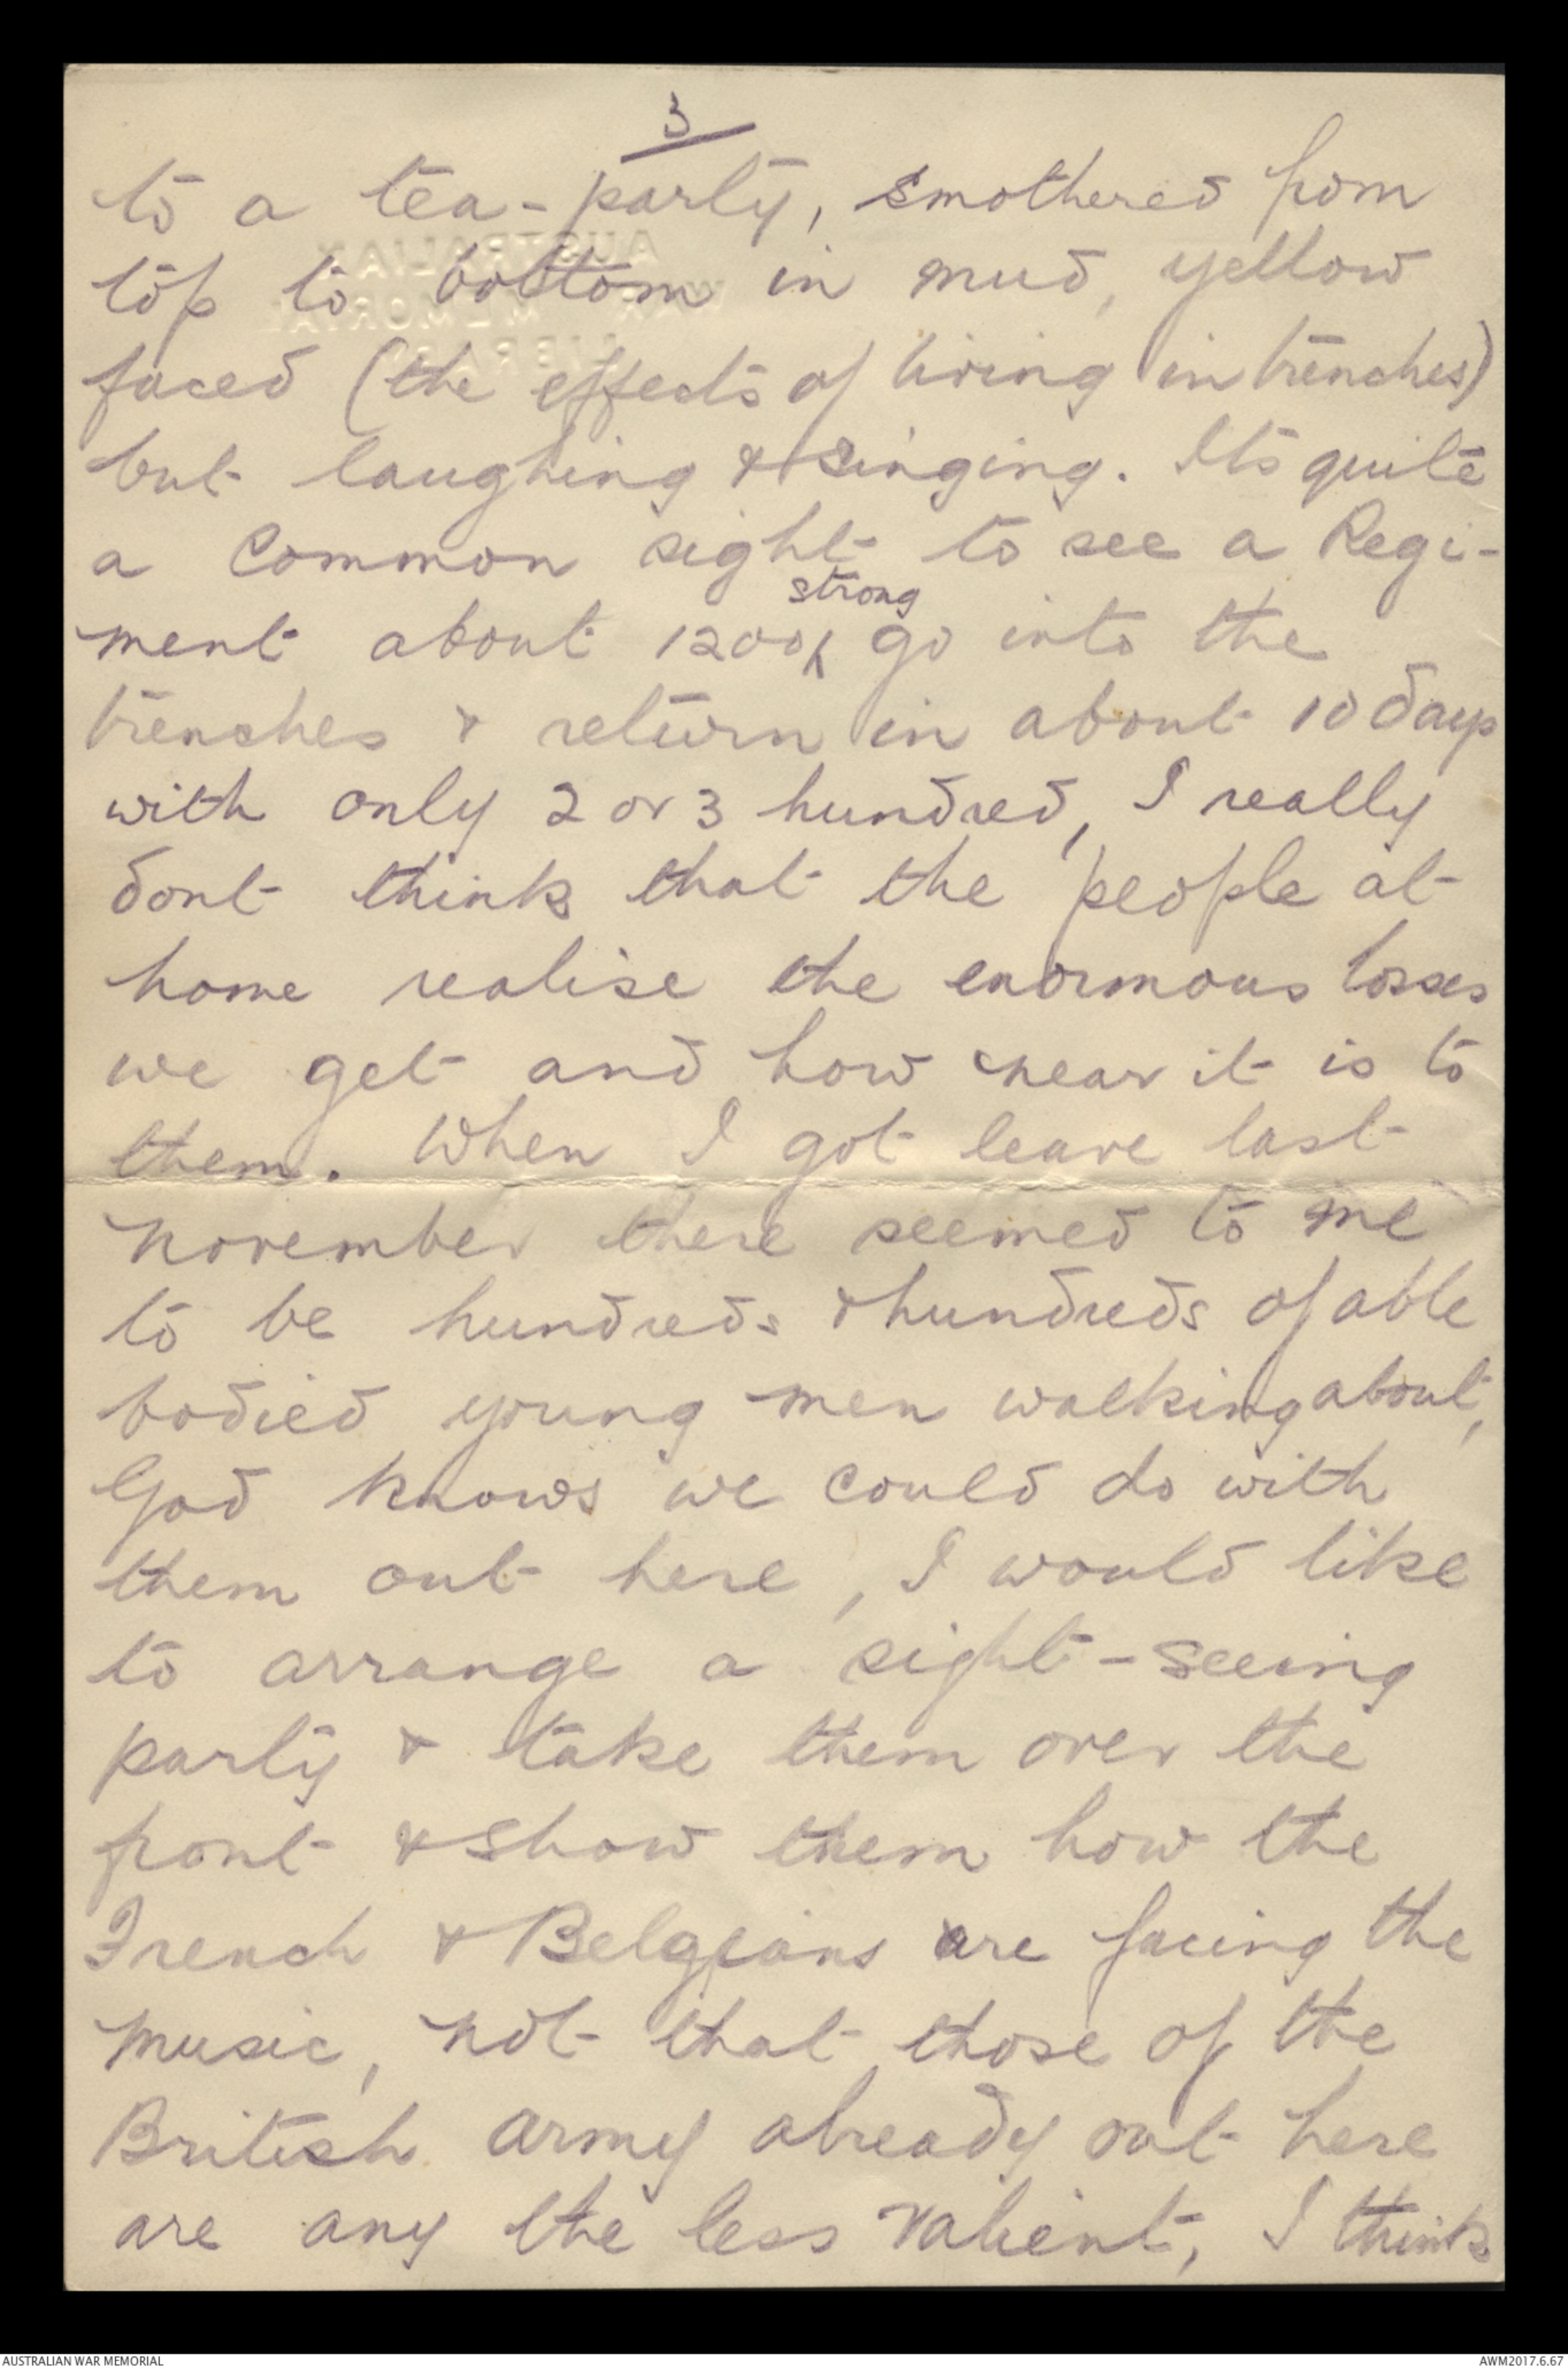 3
to a tea-party, smothered from
top to bottom in mud, yellow
faced (the effects of living in trenches)
but laughing & singing. Its quite
a common sight to see a Regi-
strong
ment about 1200 go into the
trenches & return in about 10 days
with only 2 or 3 hundred, I really
dont think that the people at
home realise the enormous losses
we get and how near it is to
them. When I got leave last
November there seemed to me
to be hundreds & hundreds of able
bodied young men walking about,
God knows we could do with
them out here, I would like
to arrange a sight-seeing
party & take them over the
front & show them how the
French & Belgians are facing the
music, not that those of the
British army already out here
are any the less valient, I think
AUSTRALIAN
WAR MEMORIAL
LIBRARY
AUSTRALIAN WAR MEMORIAL
AWM2017.6.67